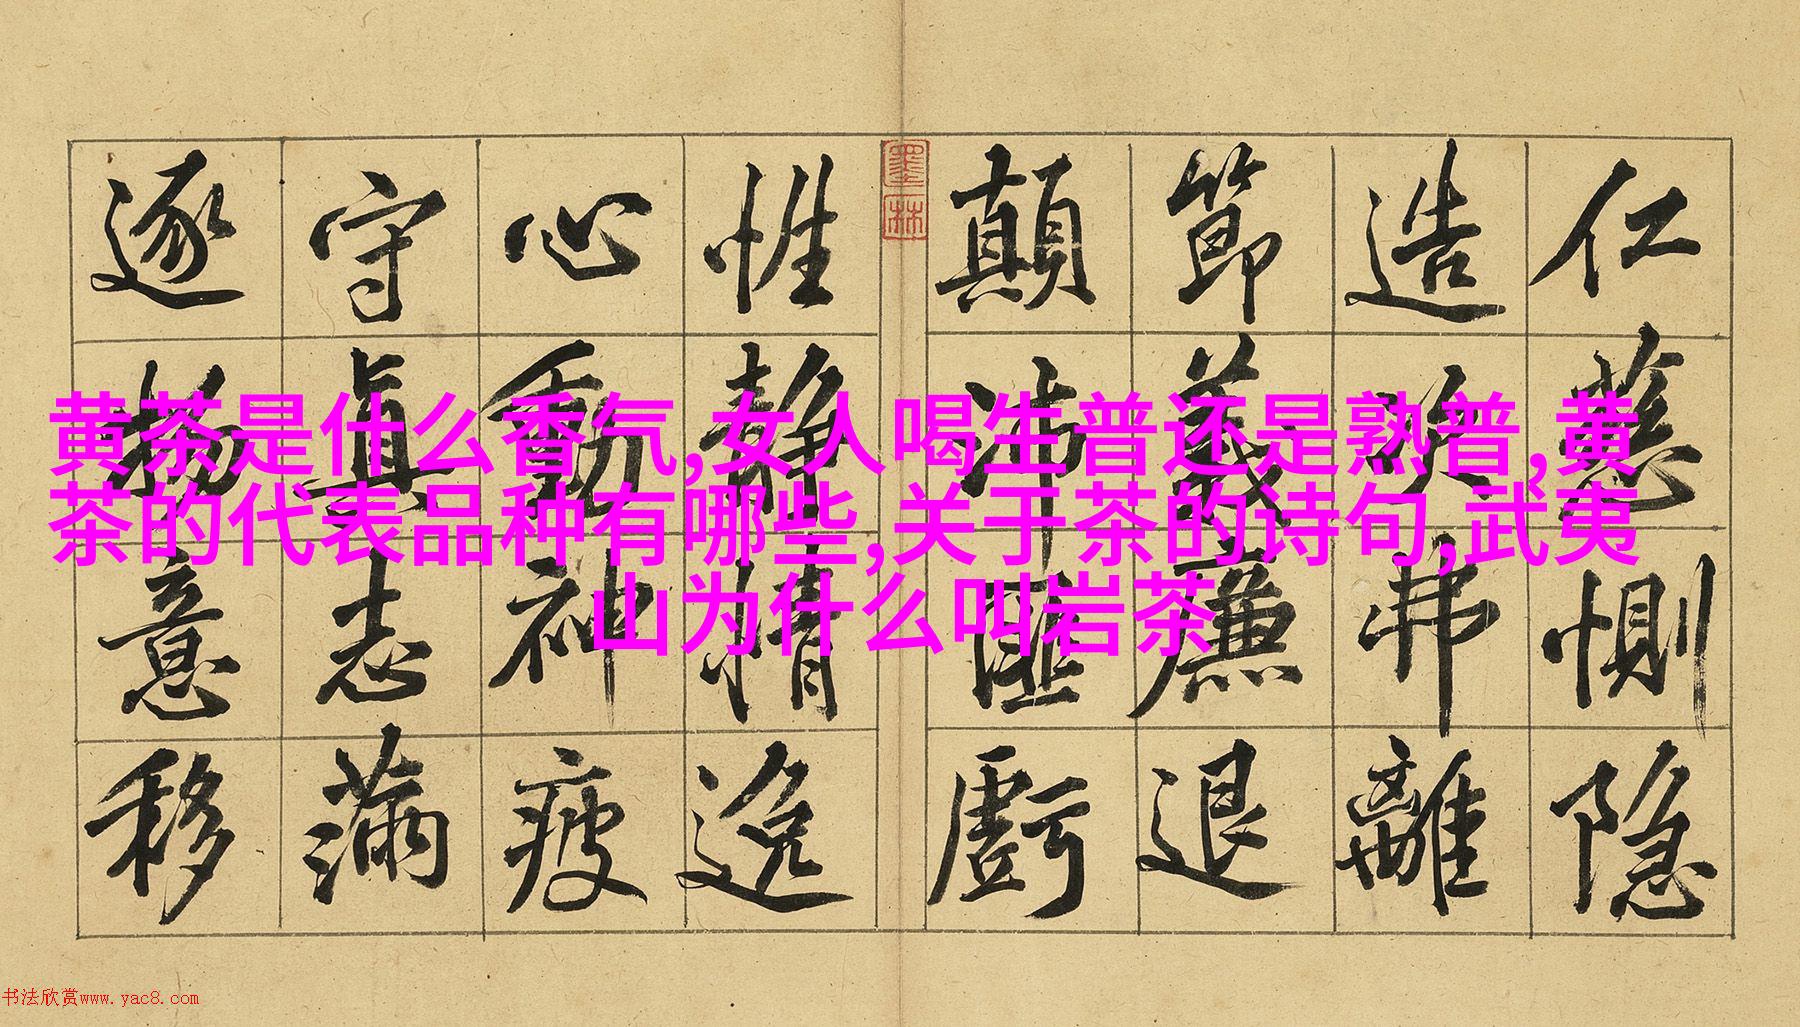 黄茶是什么香气,女人喝生普还是熟普,黄
茶的代表品种有哪些,关于茶的诗句,武夷
山为什么叫岩茶
仁慈惻隐
造次弗離
節義廉退
顛沛匪虧
墨林
性静情逸
心動神疲
守真志滿
逐物意移
书法欣赏www.yac8.com